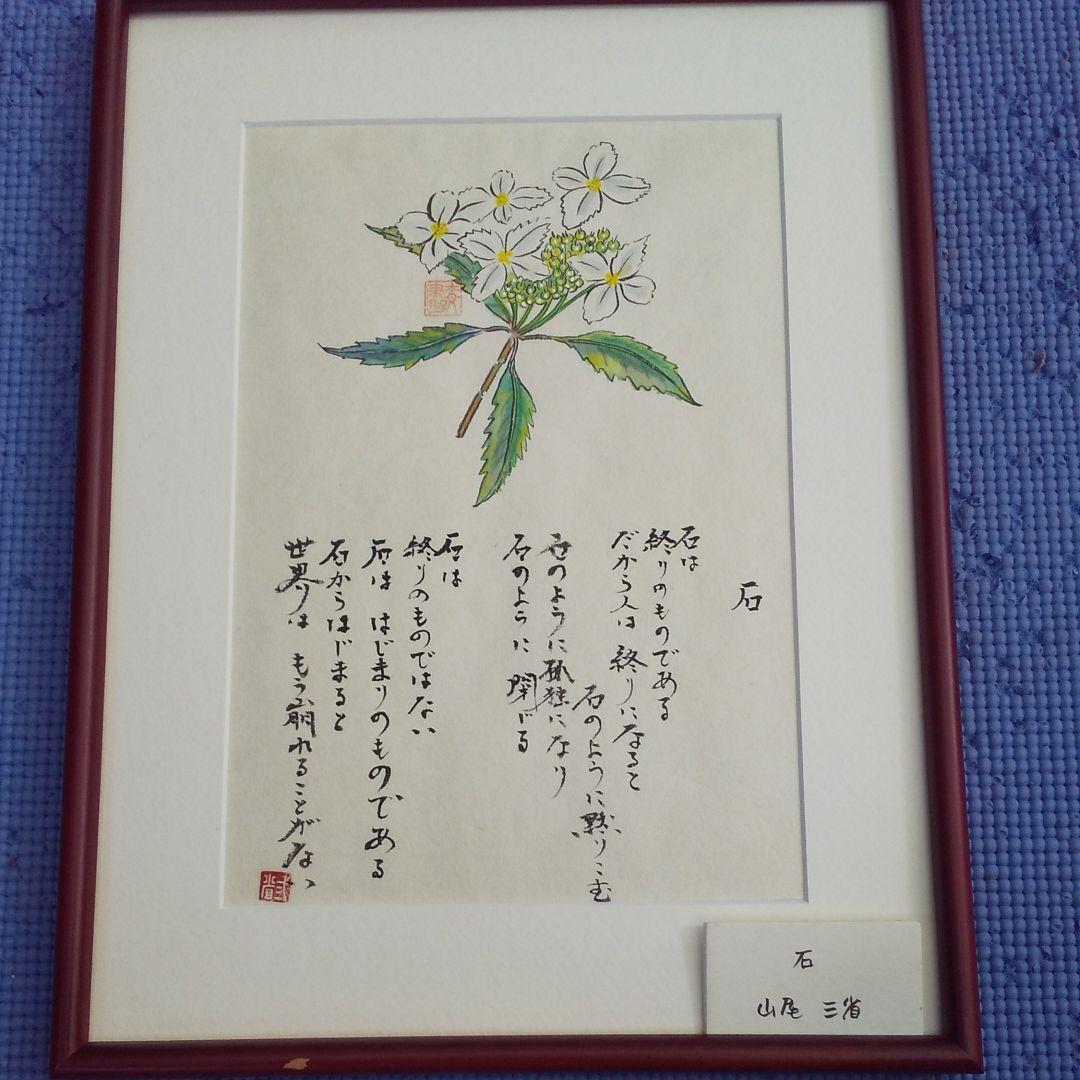 石
石は
終りのものである
だから人は 終りになると
石のように黙りこむ
石のように孤独になり
石のように 閉じる
石は
終りのものではない
石は はじまりのものである
石からはじまると
世界は もう崩れることがない
石
山尾 三省